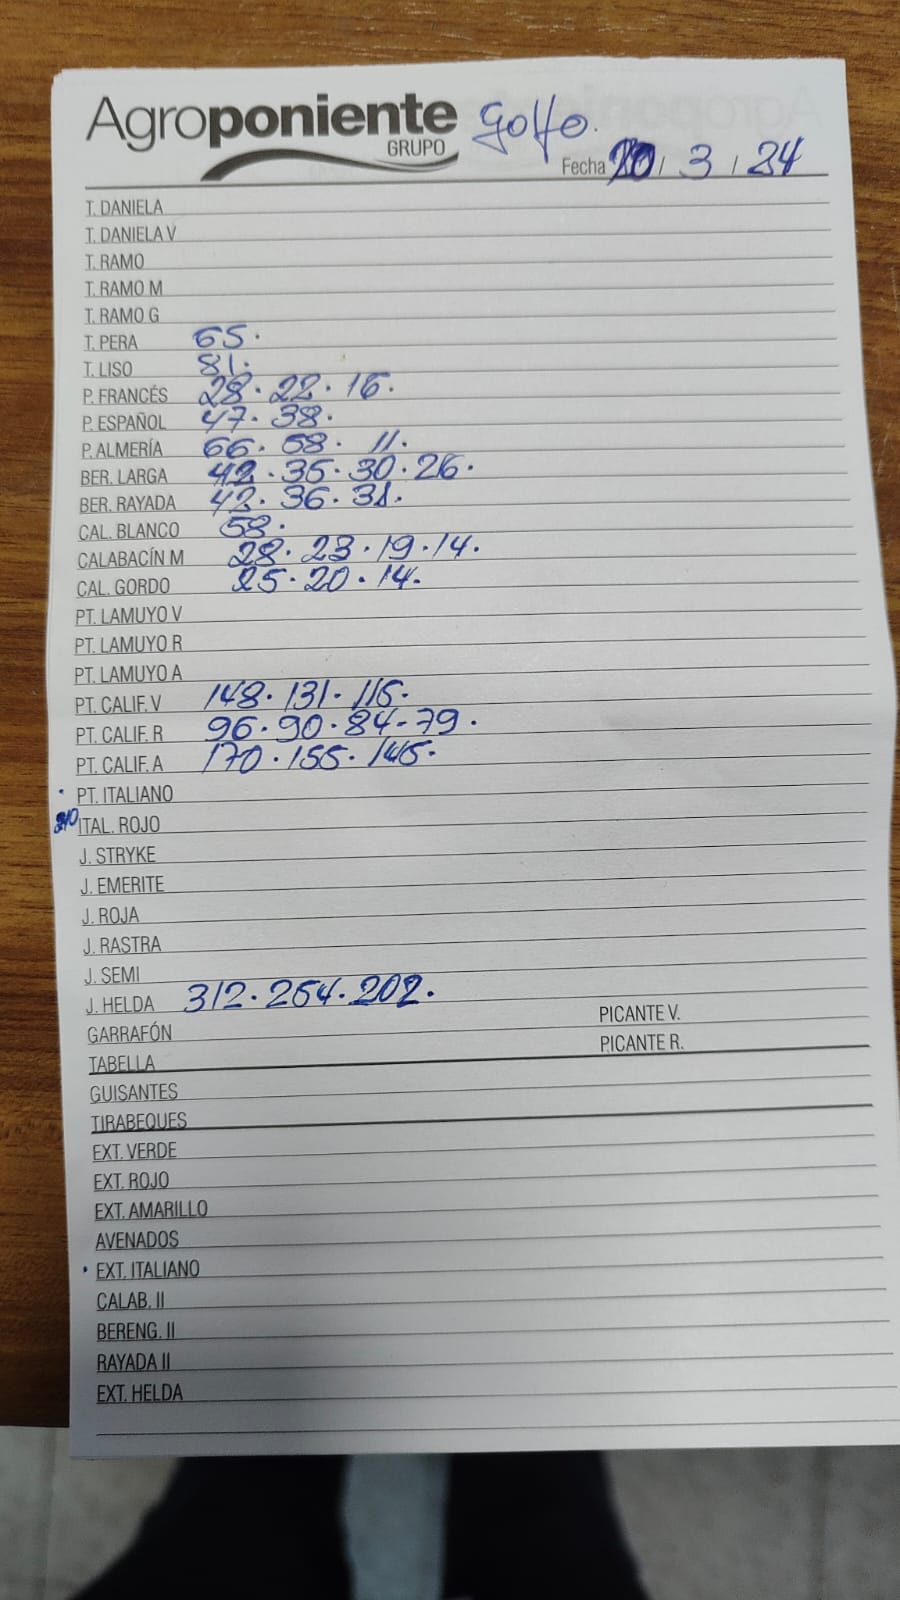 Agroponiente Golfo.
GRUPO
Fecha 20/ 3 / 24
T. DANIELA
T. DANIELA V
T. RAMO
T. RAMO M
T. RAMO G
T. PERA 65.
T. LISO 81.
P. FRANCÉS 28. 22. 16.
P. ESPAÑOL 47. 38.
P. ALMERÍA 66. 58. 11.
BER. LARGA 42. 35. 30. 26.
BER. RAYADA 42. 36. 31.
CAL. BLANCO 58.
CALABACÍN M 28. 23. 19. 14.
CAL. GORDO 25. 20. 14.
PT. LAMUYO V
PT. LAMUYO R
PT. LAMUYO A
PT. CALIF. V 148. 131. 115.
PT. CALIF. R 96. 90. 84-79.
PT. CALIF. A 170. 155. 145.
PT. ITALIANO
ITAL. ROJO
J. STRYKE
J. EMERITE
J. ROJA
J. RASTRA
J. SEMI
J. HELDA 312. 254. 202.
GARRAFÓN PICANTE V.
TABELLA PICANTE R.
GUISANTES
TIRABEQUES
EXT. VERDE
EXT. ROJO
EXT. AMARILLO
AVENADOS
EXT. ITALIANO
CALAB. II
BERENG. II
RAYADA II
EXT. HELDA